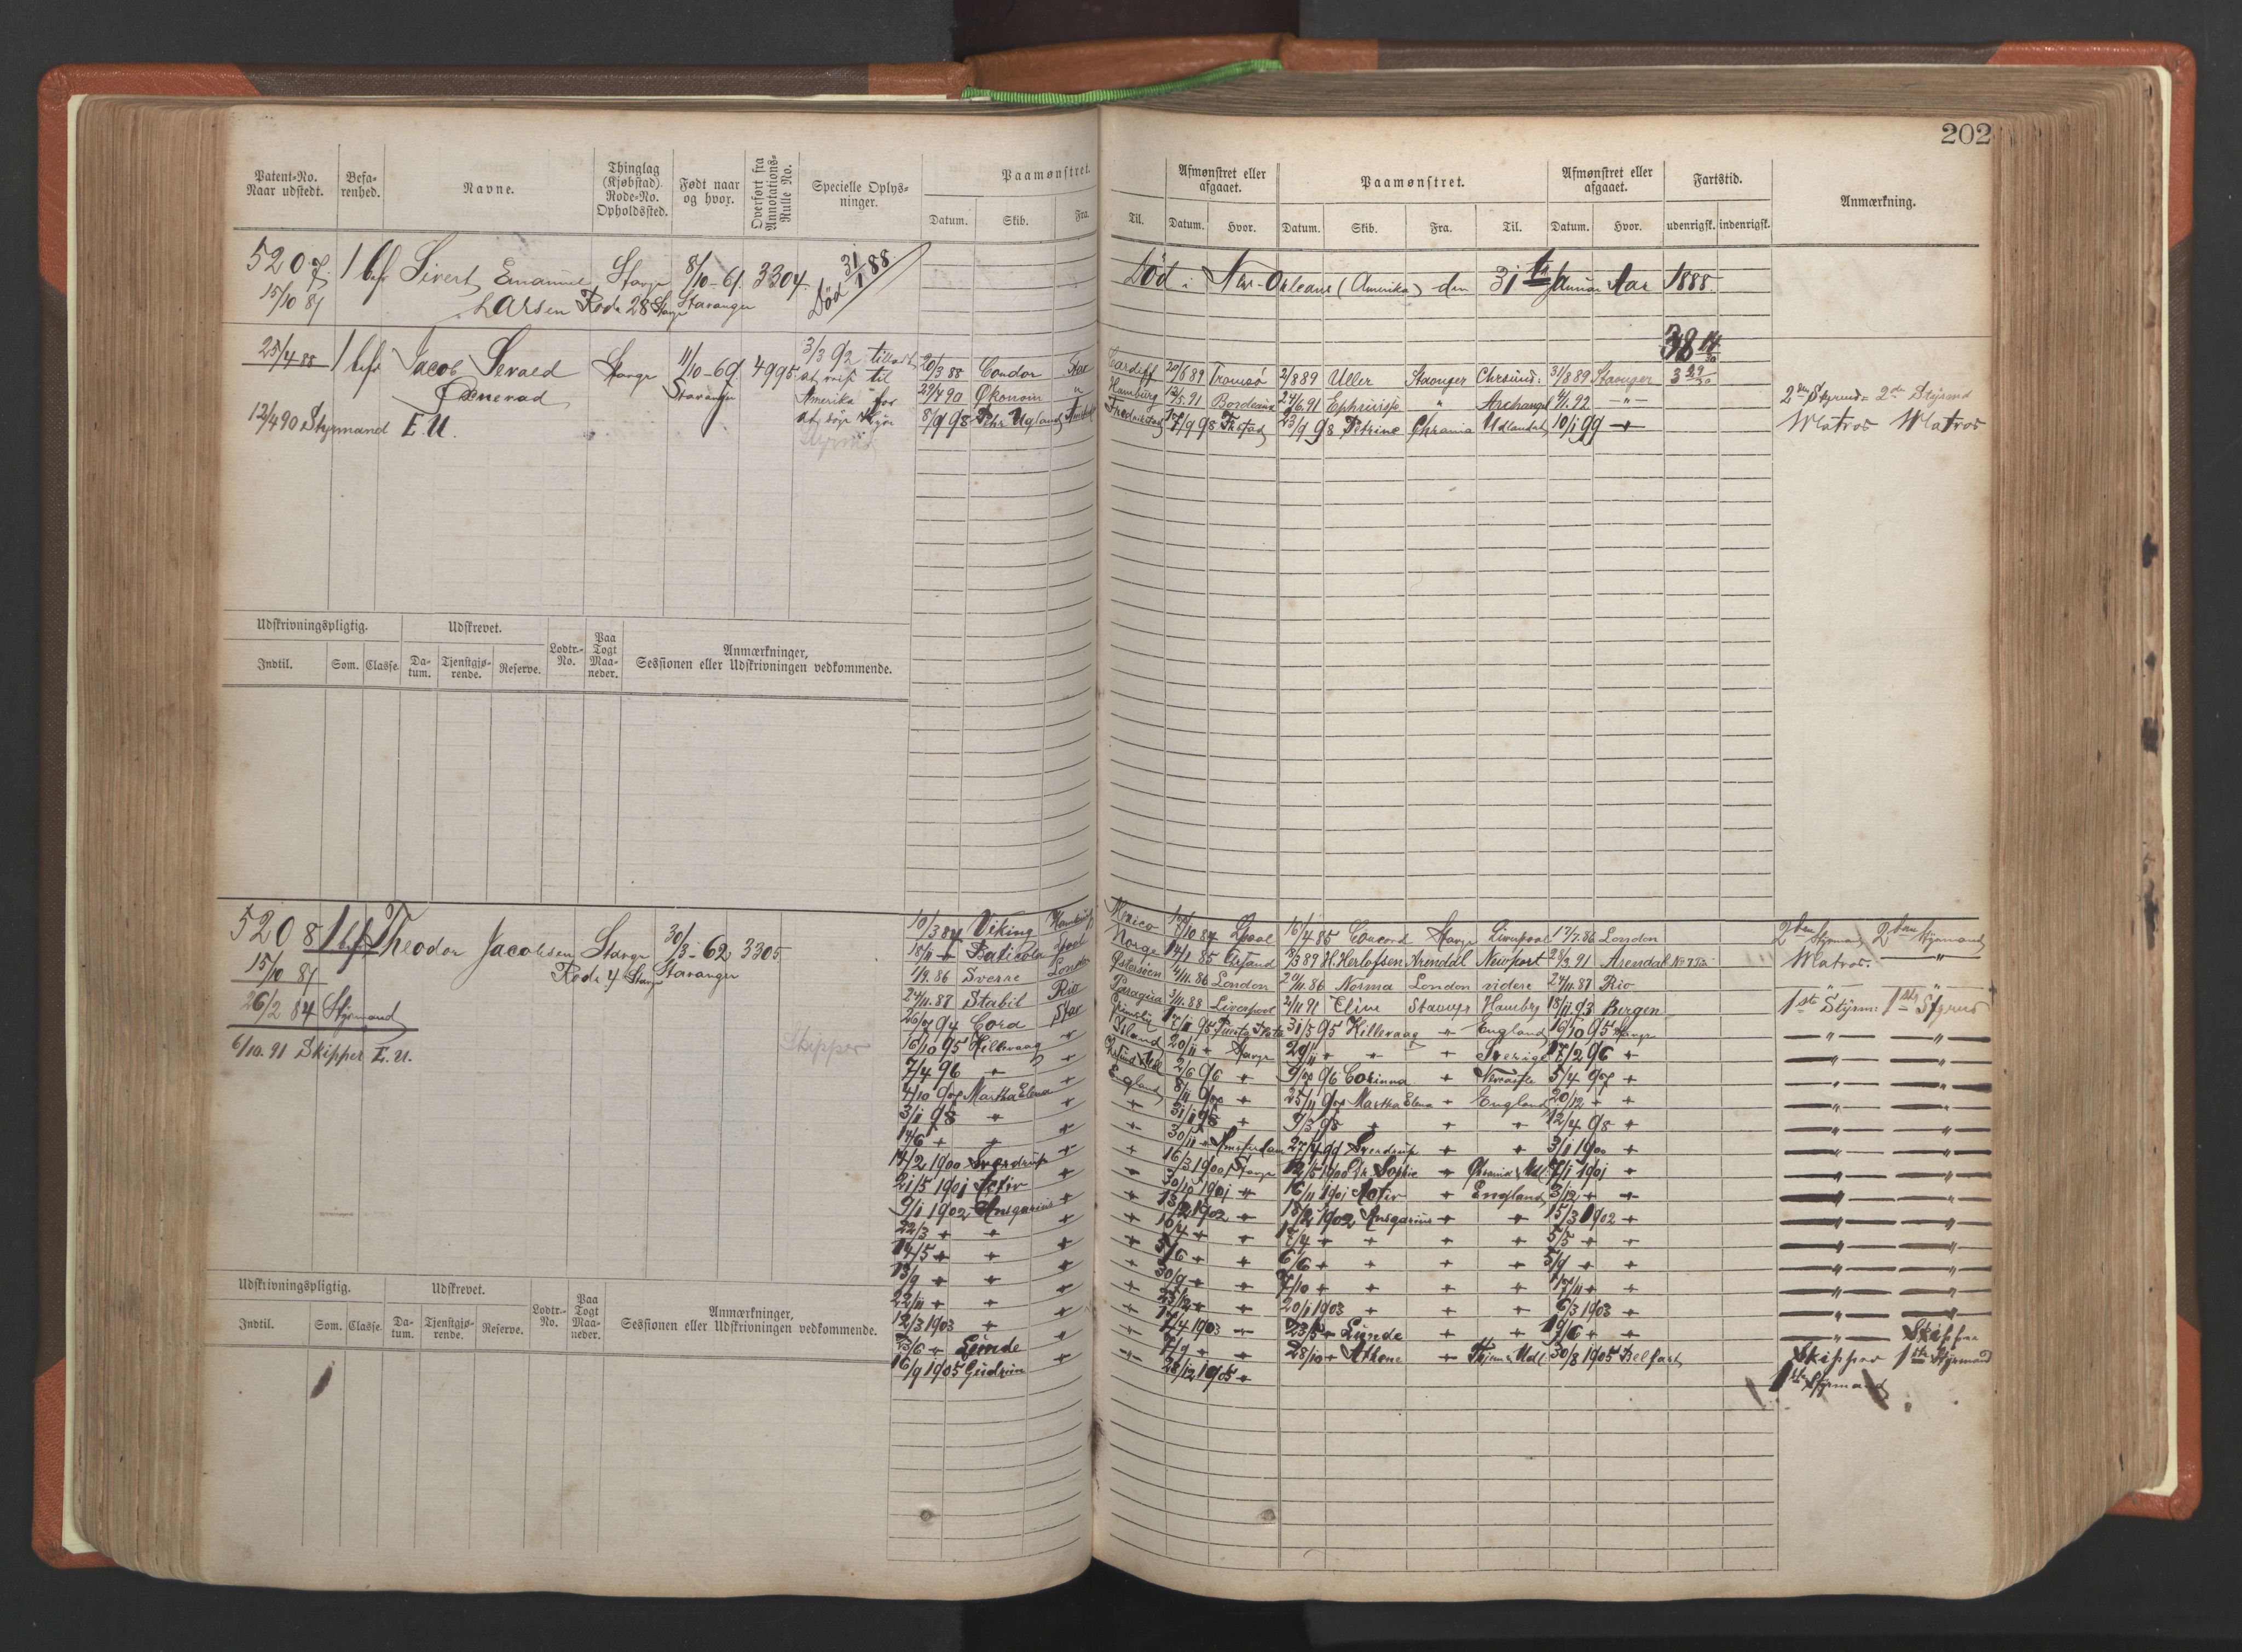 202
Patent-No. Naar udstedt. Befa-renhed. Navne. Thinglag (Kjøbstad). Rode-No. Opholdssted. Født naar og hvor. Overført fra Annotations-Rulle No. Specielle Oplys-ninger. Paamønstret. Datum. Skib. Fra.
Til. Afmønstret eller afgaaet. Datum. Hvor. Paamønstret. Datum. Skib. Fra. Til. Afmønstret eller afgaaet. Datum. Hvor. Fartstid. udenrigsk. indenrigsk. Anmærkning.
5207 1 bef Sivert Emanuel Stavgr 8/10-61 3304 Død 31/1 88
15/10 81 Larsen Rode 28 Stavgr Stavanger
Død i New-Orleans (Amerika) den 31te Januar Aar 1888.
25/4 88 1 bef Jacob Sevald Stavgr 11/10-69 4995 3/3 92 tilladt
at reise til
Stavanger Amerika for
at søge Hyre
12/4 90 Styrmand E.U.
Styrmd
20/3 88 Condor Stav Cardiff 20/6 89 Tromsø 2/8 89 Uller Stavanger Chrsund: 31/8 89 Stavanger
29/7 90 Økonom " Hamburg 12/5 91 Bordeaux 24/6 91 " Archangel 9/1 92 —"— 2den Styrmd 2den Styrmd
8/9 98 Fredrikstad 17/9 98 23/9 98 Petrine Chrania Udlandet 10/1 99 Matros Matros
Udskrivningspligtig. Udskrevet. Lodtr.-No. Paa Togt Maa-neder. Anmærkninger, Sessionen eller Udskrivningen vedkommende.
Indtil. Som. Classe. Da-tum. Tjenstgjø-rende. Reserve.
5208 1 bef Theodor Jacobsen Stavgr 30/3-62 3305
15/10 81 Rode 4 Stavgr Stavanger
26/2 84 Styrmand
6/10 91 Skipper E.U.
Skipper
Viking Mexico 16/4 85 Concord Stavgr Liverpool 17/7 86 London 2den Styrmand 2den Styrmand
Norge H. Herlofsen Arendal Newport 21/3 91 Arendal Matros. —"—
1/9 86 Sverre London Østersøen 4/11 86 London 20/11 86 Norma London videre 24/11 87 Rio
24/11 87 Stabil Rio 3/11 88 Liverpool 2/11 91 Eline Stavgr Hamborg 18/11 93 Bergen 1ste Styrm: 1ste Styrmd
26/7 94 Cora Stav Grimsby 17/11 95 31/5 95 Killevaag + England 16/10 95 Stavgr —"— —"—
16/10 95 Killevaag + Island 20/11 + Stavgr 29/11 + + + Sverige 17/2 96 + —"— —"—
7/4 96 + + 2/6 96 + 9/7 96 Corinna + Newcastle 5/4 97 + —"— —"—
4/10 97 Martha Elena + England 8/11 97 + 25/11 97 Martha Elena + England 20/12 + + —"— —"—
3/1 98 + + + 31/1 98 + 9/3 98 + + + 12/4 98 + —"— —"—
14/6 + + + + 30/11 + Amsterdam 27/4 99 Sverdrup + + 3/1 1900 + —"— —"—
14/2 1900 Sverdrup + + 16/3 1900 Stavgr 12/5 1900 Sophie + 7/1 1901 + —"— —"—
21/5 1901 Activ + + 30/10 1901 + 16/11 1901 Activ + England 3/12 + + —"— —"—
9/1 1902 Ansgarius + + 13/2 1902 + 18/2 1902 Ansgarius + + 15/3 1902 + —"— —"—
22/3 + + + + 10/4 + + 17/4 + + + + 5/5 + + —"— —"—
14/5 + + + + 5/6 + + 6/6 + + + + 5/9 + + —"— —"—
13/9 + + + + 30/9 + + 7/10 + + + + 17/11 + + —"— —"—
22/11 + + + + 23/12 + + 20/1 1903 + + + 6/3 1903 + —"— —"—
12/3 1903 + + + 17/4 1903 + 23/5 + Lunde + + 19/6 + + —"— Skipper
23/6 + Lunde + + 7/9 + + 28/10 + Athene + 30/8 1905 Belfast Skipper 1ste Styrmand
16/9 1905 Gudrun + + 28/12 1905 + 1ste Styrmand
Udskrivningspligtig. Udskrevet. Lodtr.-No. Paa Togt Maa-neder. Anmærkninger, Sessionen eller Udskrivningen vedkommende.
Indtil. Som. Classe. Da-tum. Tjenstgjø-rende. Reserve.